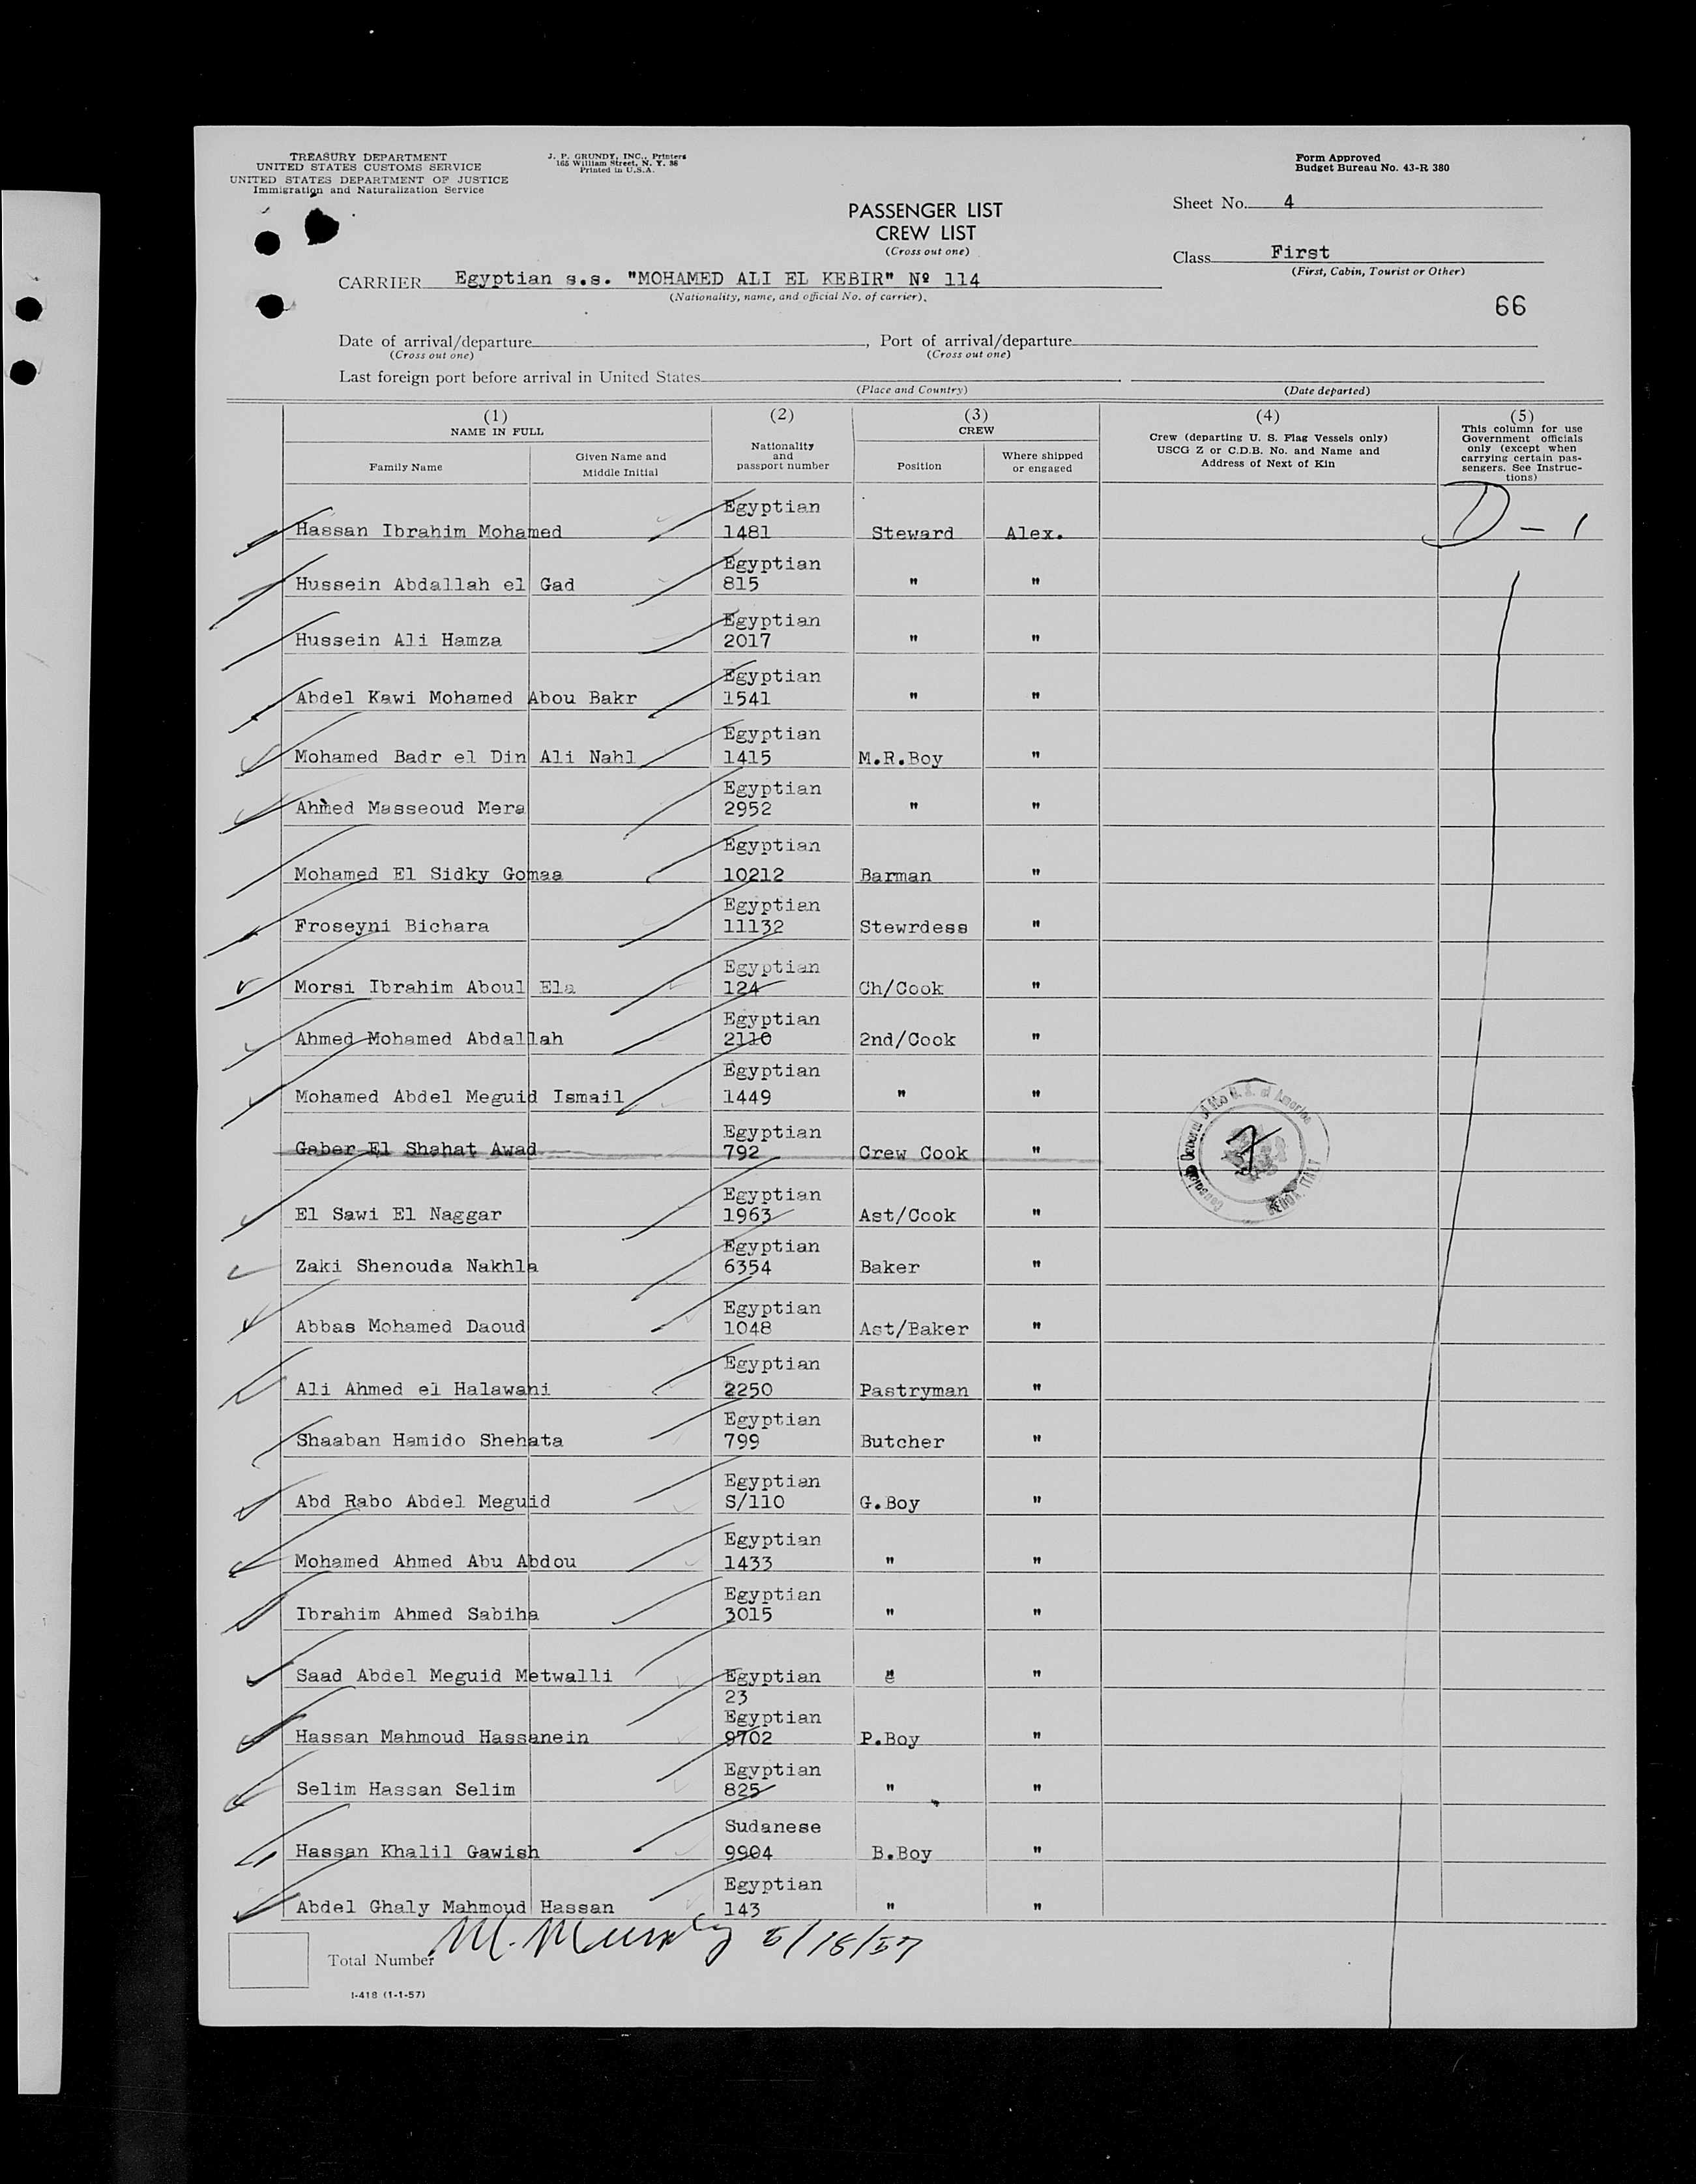 TREASURY DEPARTMENT
UNITED STATES CUSTOMS SERVICE
UNITED STATES DEPARTMENT OF JUSTICE
Immigration and Naturalization Service
J. P. GRUNDY, INC., Printers
165 William Street, N. Y. 38
Printed in U.S.A.
Form Approved
Budget Bureau No. 43-R 380
PASSENGER LIST
CREW LIST
(Cross out one)
Sheet No. 4
Class First
(First, Cabin, Tourist or Other)
CARRIER Egyptian s.s. "MOHAMED ALI EL KEBIR" Nº 114
(Nationality, name, and official No. of carrier).
66
Date of arrival/departure , Port of arrival/departure
(Cross out one) (Cross out one)
Last foreign port before arrival in United States
(Place and Country) (Date departed)
(1) NAME IN FULL
Family Name
Given Name and Middle Initial
(2) Nationality and passport number
(3) CREW
Position
Where shipped or engaged
(4) Crew (departing U. S. Flag Vessels only) USCG Z or C.D.B. No. and Name and Address of Next of Kin
(5) This column for use Government officials only (except when carrying certain passengers. See Instructions)
Hassan Ibrahim Mohamed Egyptian 1481 Steward Alex. D - 1
Hussein Abdallah el Gad Egyptian 815 " "
Hussein Ali Hamza Egyptian 2017 " "
Abdel Kawi Mohamed Abou Bakr Egyptian 1541 " "
Mohamed Badr el Din Ali Nahl Egyptian 1415 M.R.Boy "
Ahmed Masseoud Mera Egyptian 2952 " "
Mohamed El Sidky Gomaa Egyptian 10212 Barman "
Froseyni Bichara Egyptian 11132 Stewrdess "
Morsi Ibrahim Aboul Ela Egyptian 124 Ch/Cook "
Ahmed Mohamed Abdallah Egyptian 2110 2nd/Cook "
Mohamed Abdel Meguid Ismail Egyptian 1449 " "
Gaber El Shahat Awad Egyptian 792 Crew Cook "
El Sawi El Naggar Egyptian 1963 Ast/Cook "
Zaki Shenouda Nakhla Egyptian 6354 Baker "
Abbas Mohamed Daoud Egyptian 1048 Ast/Baker "
Ali Ahmed el Halawani Egyptian 2250 Pastryman "
Shaaban Hamido Shehata Egyptian 799 Butcher "
Abd Rabo Abdel Meguid Egyptian S/110 G.Boy "
Mohamed Ahmed Abu Abdou Egyptian 1433 " "
Ibrahim Ahmed Sabiha Egyptian 3015 " "
Saad Abdel Meguid Metwalli Egyptian 23 " "
Hassan Mahmoud Hassanein Egyptian 9702 P.Boy "
Selim Hassan Selim Egyptian 825 " "
Hassan Khalil Gawish Sudanese 9904 B.Boy "
Abdel Ghaly Mahmoud Hassan Egyptian 143 " "
Total Number
I-418 (1-1-57)